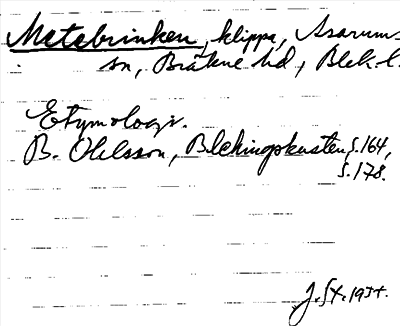 Metabrinken, klippa, Asarums
sn, Bräkne hd, Blek. l.
Etymologi.
B. Ohlsson, Blekingekusten, s. 164,
s. 178.
1934.